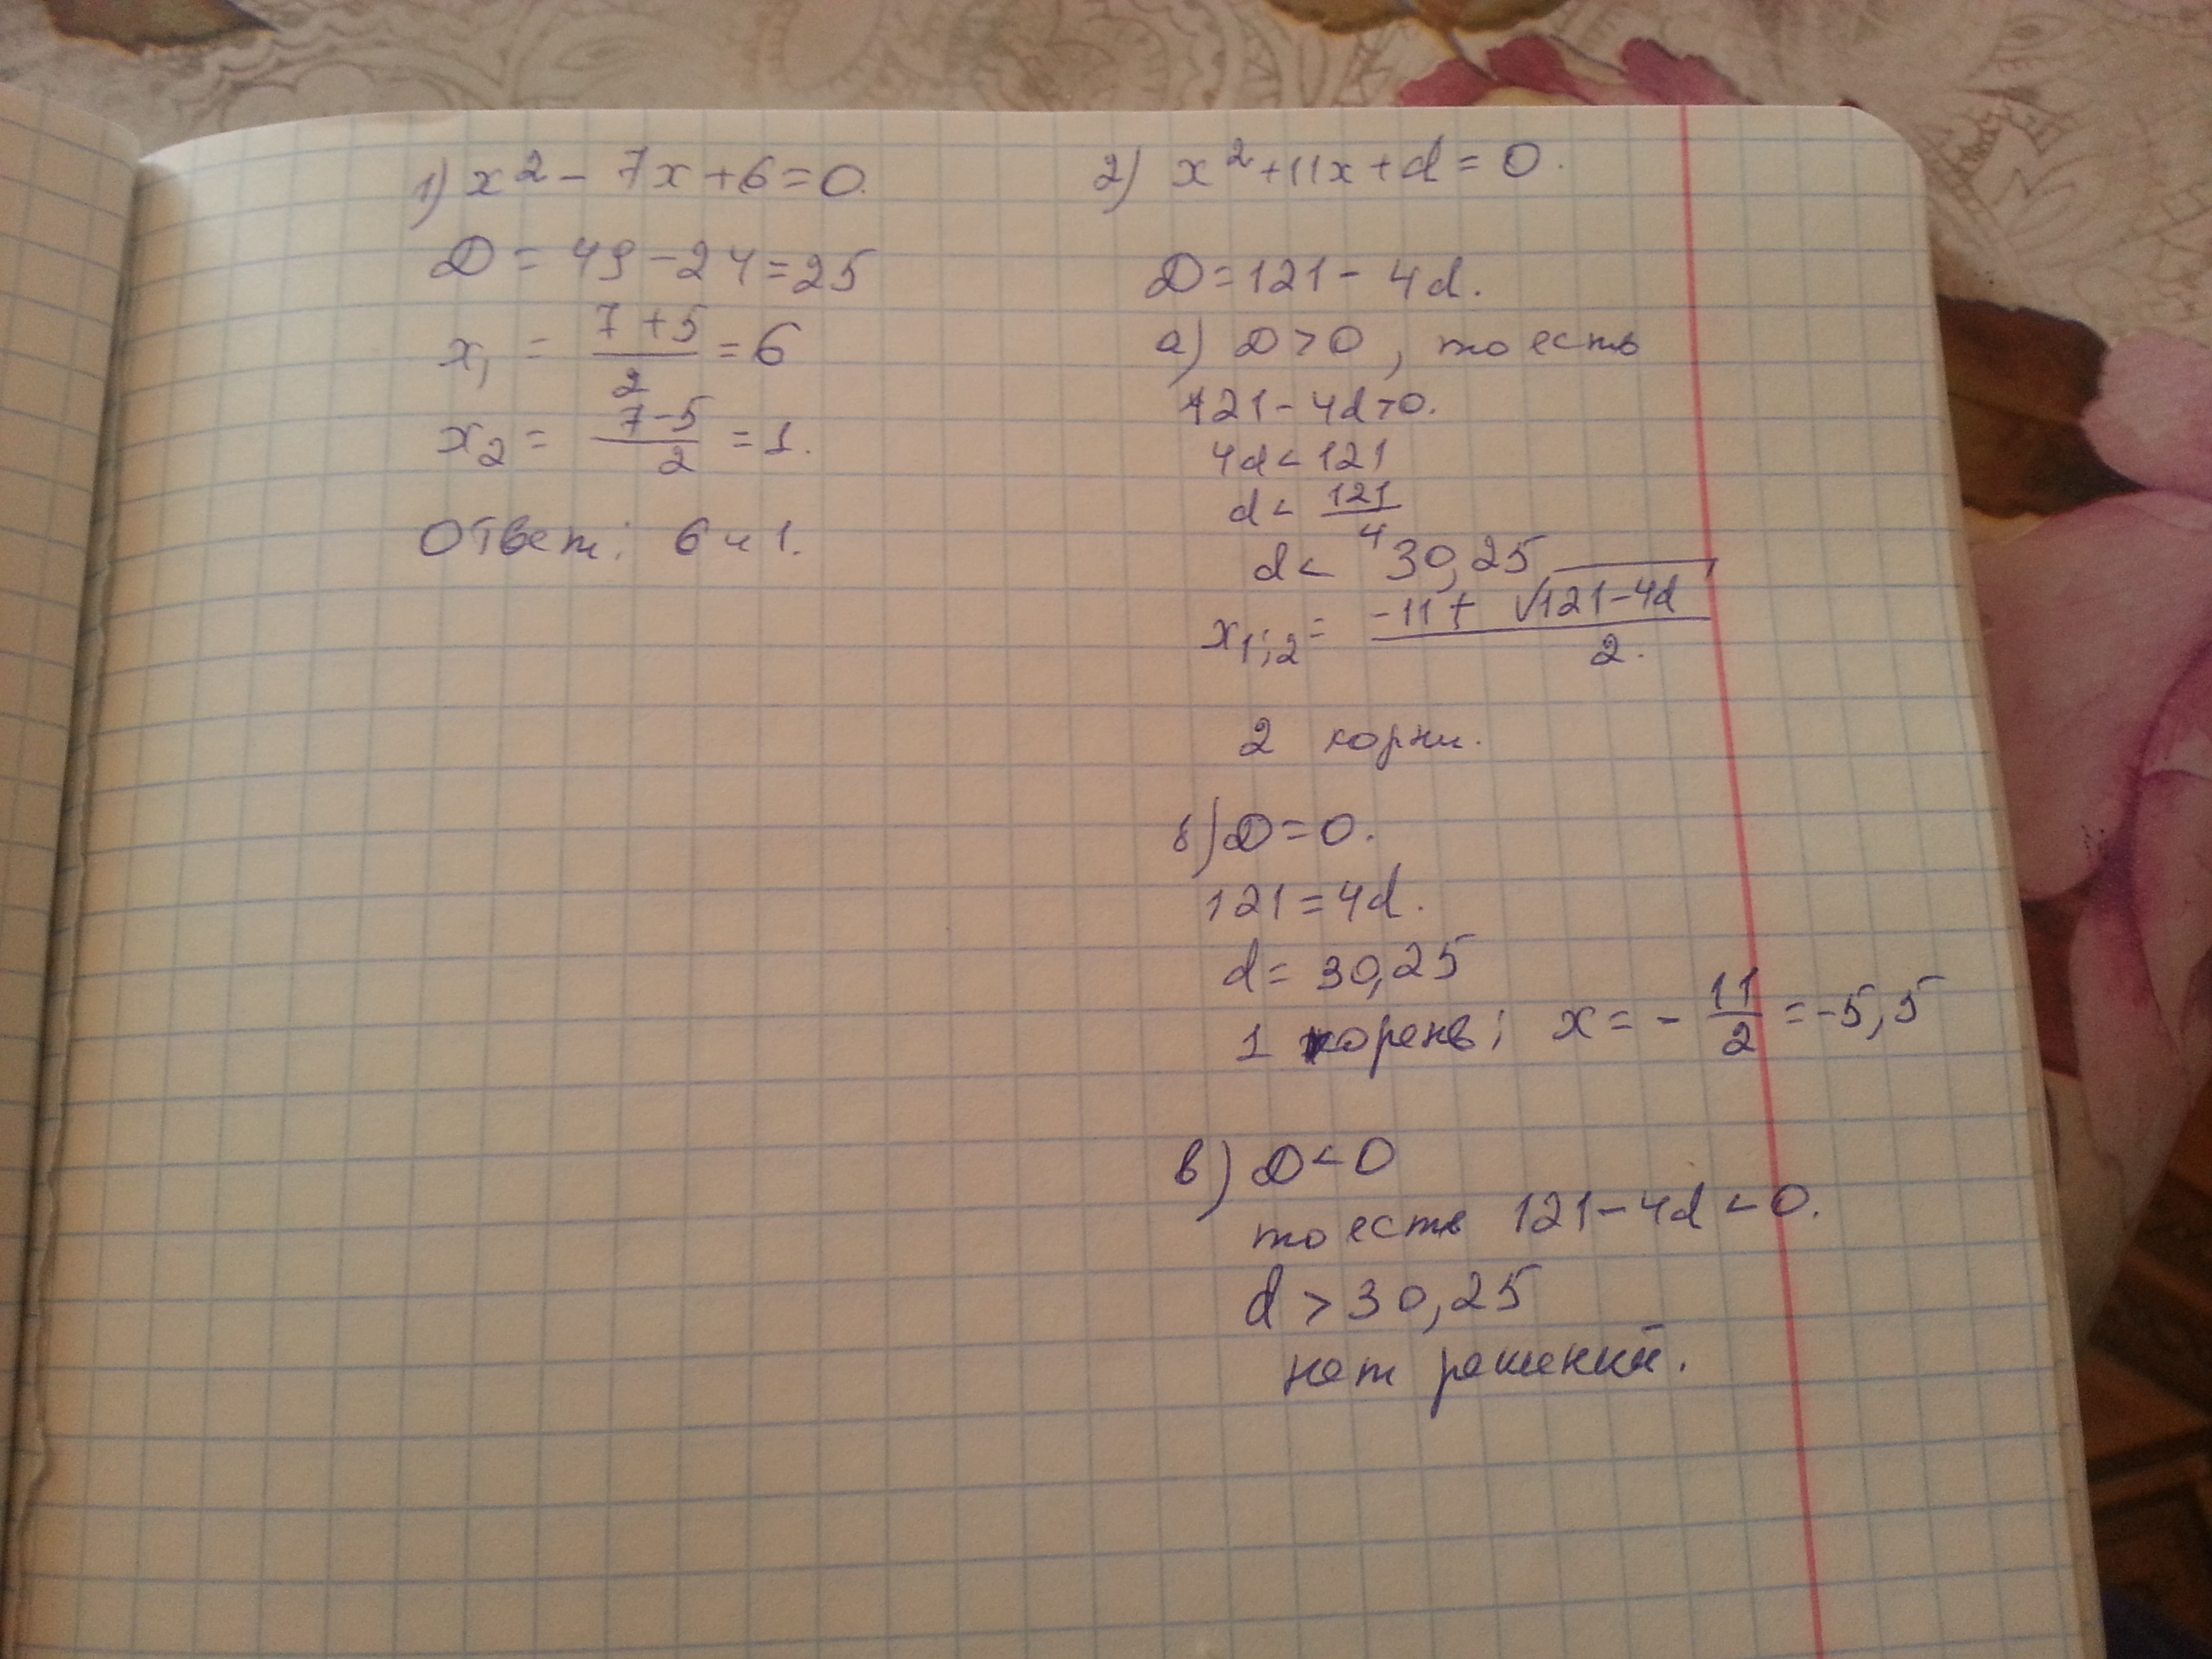 1) x² - 7x + 6 = 0.
D = 49 - 24 = 25
x₁ = (7 + 5)/2 = 6
x₂ = (7 - 5)/2 = 1.
Ответ: 6 и 1.
2) x² + 11x + d = 0.
D = 121 - 4d.
а) D > 0, то есть
121 - 4d > 0.
4d < 121
d < 121/4
d < 30,25
x₁;₂ = (-11 ± √(121 - 4d))/2.
2 корни.
б) D = 0.
121 = 4d.
d = 30,25
1 корень; x = - 11/2 = -5,5
в) D < 0
то есть 121 - 4d < 0.
d > 30,25
нет решений.